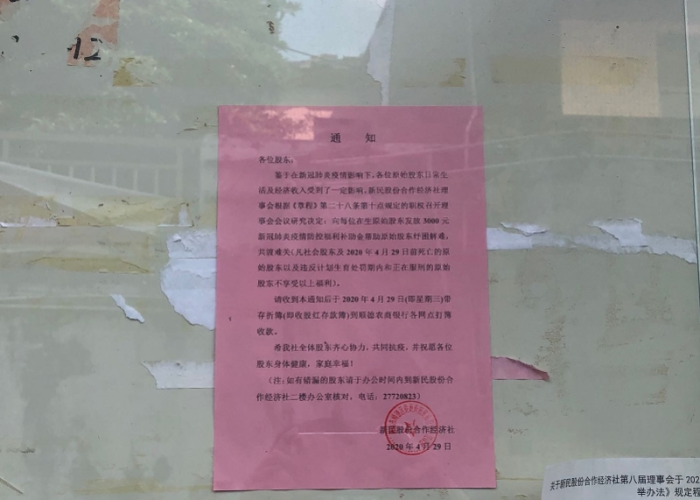 12
通 知
各位股东:
鉴于在新冠肺炎疫情影响下,各位原始股东日常生
活及经济收入受到了一定影响,新民股份合作经济社理
事会根据《章程》第二十八条第十点规定的职权召开理
事会会议研究决定:向每位在生原始股东发放 3000 元
新冠肺炎疫情防控福利补助金帮助原始股东纾困解难,
共渡难关(凡社会股东及 2020 年 4 月 29 日前死亡的原
始股东以及违反计划生育处罚期内和正在服刑的原始
股东不享受以上福利)。
请收到本通知后于 2020 年 4 月 29 日(即星期三)带
存折簿(即收股红存款簿)到顺德农商银行各网点打簿
收款。
希我社全体股东齐心协力,共同抗疫,并祝愿各位
股东身体健康,家庭幸福!
(注:如有错漏的股东请于办公时间内到新民股份合
作经济社二楼办公室核对,电话:27720823)
新民股份合作经济社
2020 年 4 月 29 日
关于新民股份合作经济社第八届理事会于 202
举办法》规定